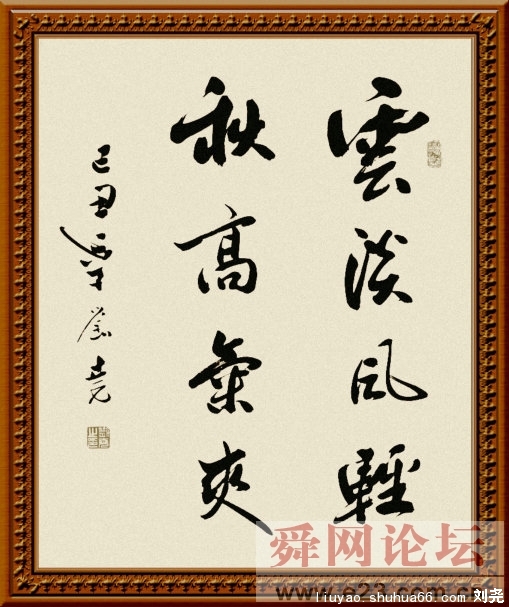 雲淡风輕
秋高氣爽
己丑 尧
舜网论坛
liuyao.shuhua66.com 刘尧